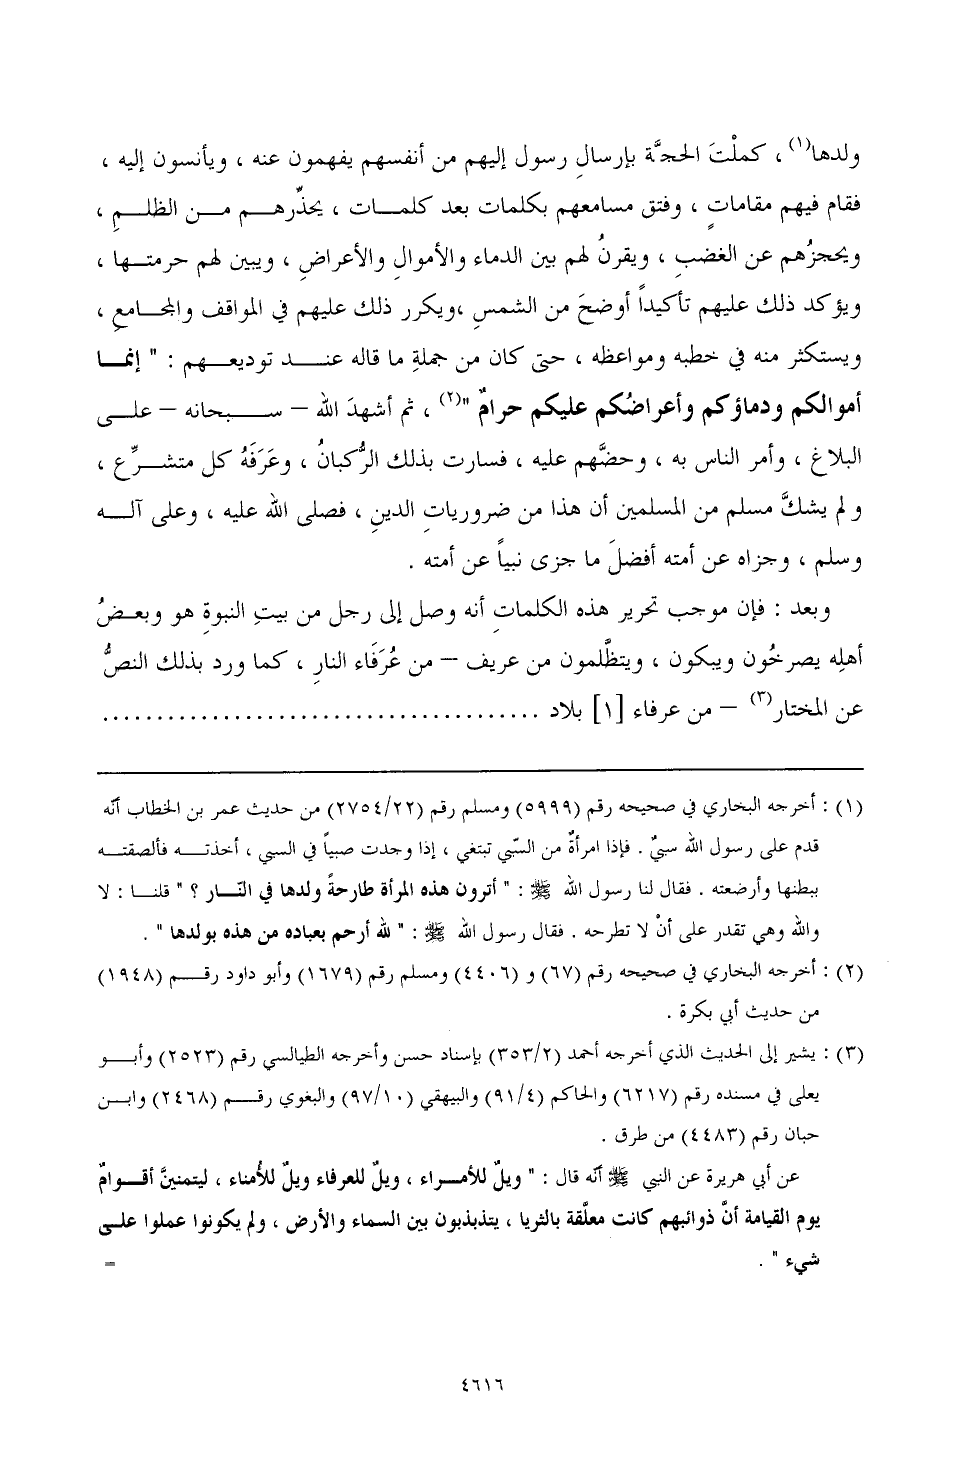 ولدها(١) ، كملْتَ الحجَّة بإرسالِ رسول إليهم من أنفسهم يفهمون عنه ، ويأنسون إليه ،
فقام فيهم مقاماتٍ ، وفتق مسامعهم بكلمات بعد كلمات ، يحذّرهم من الظلمِ ،
ويحجزُهم عن الغضبِ ، ويقرنُ لهم بين الدماء والأموالِ والأعراضِ ، ويبين لهم حرمتها ،
ويؤكد ذلك عليهم تأكيداً أوضحَ من الشمسِ ،ويكرر ذلك عليهم في المواقف والمجامعِ ،
ويستكثر منه في خطبه ومواعظه ، حتى كان من جملةِ ما قاله عند توديعهم : " إنما
أموالكم ودماؤكم وأعراضُكم عليكم حرامٌ "(٢) ، ثم أشهدَ الله – سبحانه – على
البلاغ ، وأمر الناس به ، وحضَّهم عليه ، فسارت بذلك الرُّكبانُ ، وعَرَفَهُ كل متشرِّع ،
ولم يشكَّ مسلم من المسلمين أن هذا من ضرورياتِ الدينِ ، فصلى الله عليه ، وعلى آله
وسلم ، وجزاه عن أمته أفضلَ ما جزى نبياً عن أمته .
وبعد : فإن موجب تحرير هذه الكلماتِ أنه وصل إلى رجل من بيتِ النبوةِ هو وبعضُ
أهلِه يصرخُون ويبكون ، ويتظَّلمون من عريف – من عُرَفَاء النارِ ، كما ورد بذلك النصُّ
عن المختار(٣) – من عرفاء [١] بلاد .......................................
(١) : أخرجه البخاري في صحيحه رقم (٥٩٩٩) ومسلم رقم (٢٧٥٤/٢٢) من حديث عمر بن الخطاب أنّه
قدم على رسول الله سبيٌ . فإذا امرأةٌ من السّبي تبتغي ، إذا وجدت صبياً في السبي ، أخذته فألصقته
ببطنها وأرضعته . فقال لنا رسول الله ﷺ : " أترون هذه المرأة طارحةً ولدها في النّار ؟ " قلنا : لا
والله وهي تقدر على أنْ لا تطرحه . فقال رسول الله ﷺ : " لله أرحم بعباده من هذه بولدها " .
(٢) : أخرجه البخاري في صحيحه رقم (٦٧) و (٤٤٠٦) ومسلم رقم (١٦٧٩) وأبو داود رقم (١٩٤٨)
من حديث أبي بكرة .
(٣) : يشير إلى الحديث الذي أخرجه أحمد (٣٥٣/٢) بإسناد حسن وأخرجه الطيالسي رقم (٢٥٢٣) وأبو
يعلى في مسنده رقم (٦٢١٧) والحاكم (٩١/٤) والبيهقي (٩٧/١٠) والبغوي رقم (٢٤٦٨) وابن
حبان رقم (٤٤٨٣) من طرق .
عن أبي هريرة عن النبي ﷺ أنّه قال : " ويلٌ للأمراء ، ويلٌ للعرفاء ويلٌ للأُمناء ، ليتمنينَّ أقوامٌ
يوم القيامة أنَّ ذوائبهم كانت معلَّقة بالثريا ، يتذبذبون بين السماء والأرض ، ولم يكونوا عملوا على
شيء " . =
٤٦١٦